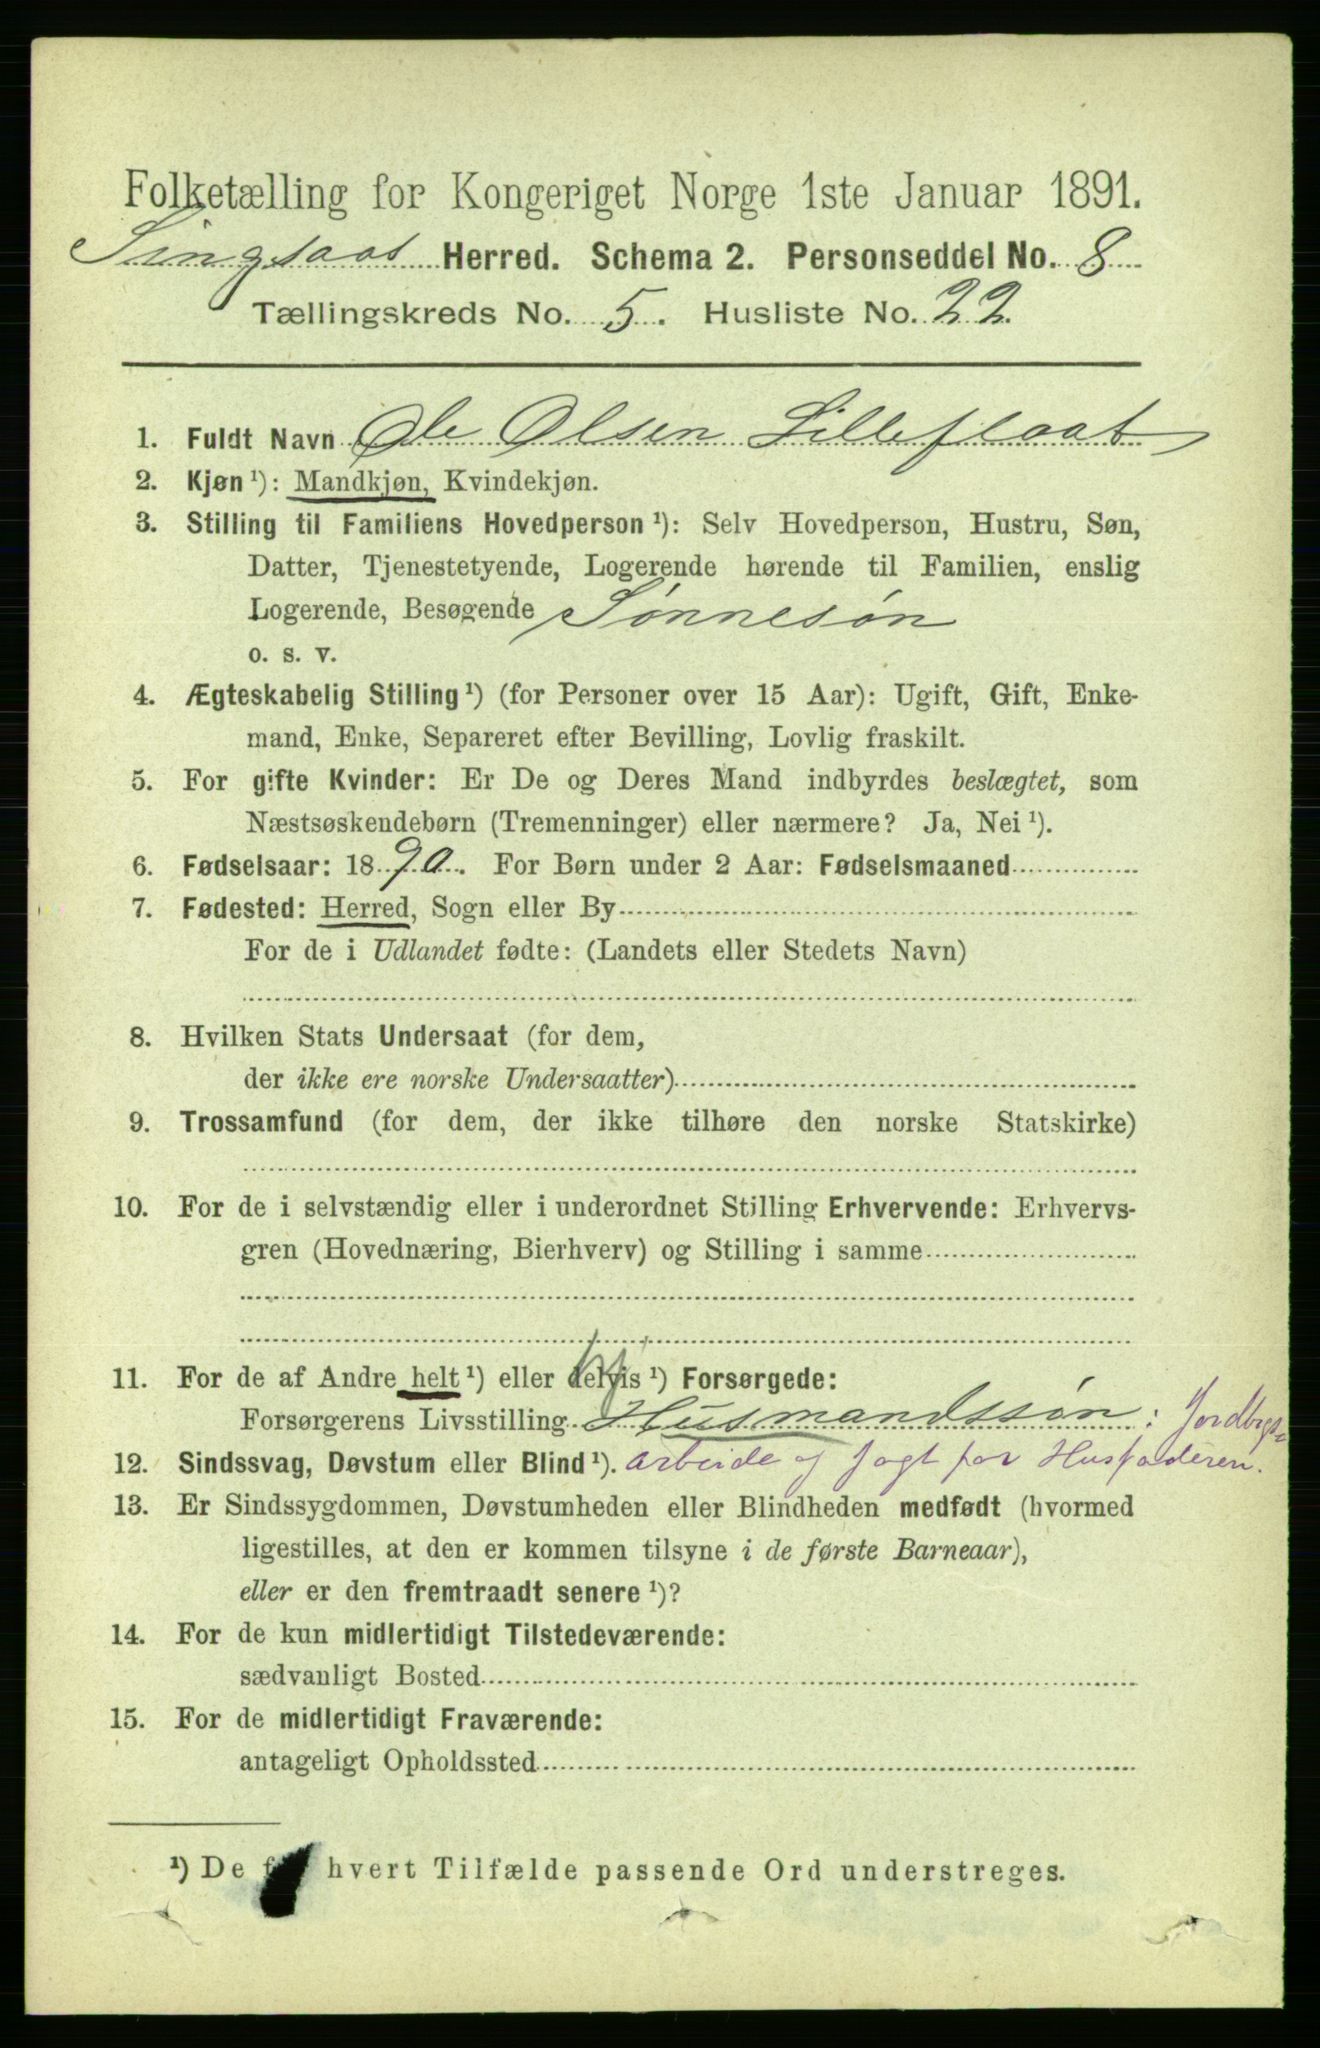 Folketælling for Kongeriget Norge 1ste Januar 1891.
Singsaas Herred. Schema 2. Personseddel No. 8
Tællingskreds No. 5. Husliste No. 22.
1. Fuldt Navn Ole Olsen Lillefloat
2. Kjøn ¹): Mandkjøn, Kvindekjøn.
3. Stilling til Familiens Hovedperson ¹): Selv Hovedperson, Hustru, Søn,
Datter, Tjenestetyende, Logerende hørende til Familien, enslig
Logerende, Besøgende Sønnesøn
o. s. v.
4. Ægteskabelig Stilling ¹) (for Personer over 15 Aar): Ugift, Gift, Enke-
mand, Enke, Separeret efter Bevilling, Lovlig fraskilt.
5. For gifte Kvinder: Er De og Deres Mand indbyrdes beslægtet, som
Næstsøskendebørn (Tremenninger) eller nærmere? Ja, Nei ¹).
6. Fødselsaar: 1890. For Børn under 2 Aar: Fødselsmaaned
7. Fødested: Herred, Sogn eller By
For de i Udlandet fødte: (Landets eller Stedets Navn)
8. Hvilken Stats Undersaat (for dem,
der ikke ere norske Undersaatter)
9. Trossamfund (for dem, der ikke tilhøre den norske Statskirke)
10. For de i selvstændig eller i underordnet Stilling Erhvervende: Erhvervs-
gren (Hovednæring, Bierhverv) og Stilling i samme
11. For de af Andre helt ¹) eller delvis ¹) Forsørgede:
Forsørgerens Livsstilling Husmandssøn: Jordbrgs-
12. Sindssvag, Døvstum eller Blind ¹). arbeide og Jagt for Husfaderen.
13. Er Sindssygdommen, Døvstumheden eller Blindheden medfødt (hvormed
ligestilles, at den er kommen tilsyne i de første Barneaar),
eller er den fremtraadt senere ¹)?
14. For de kun midlertidigt Tilstedeværende:
sædvanligt Bosted
15. For de midlertidigt Fraværende:
antageligt Opholdssted
¹) De hvert Tilfælde passende Ord understreges.